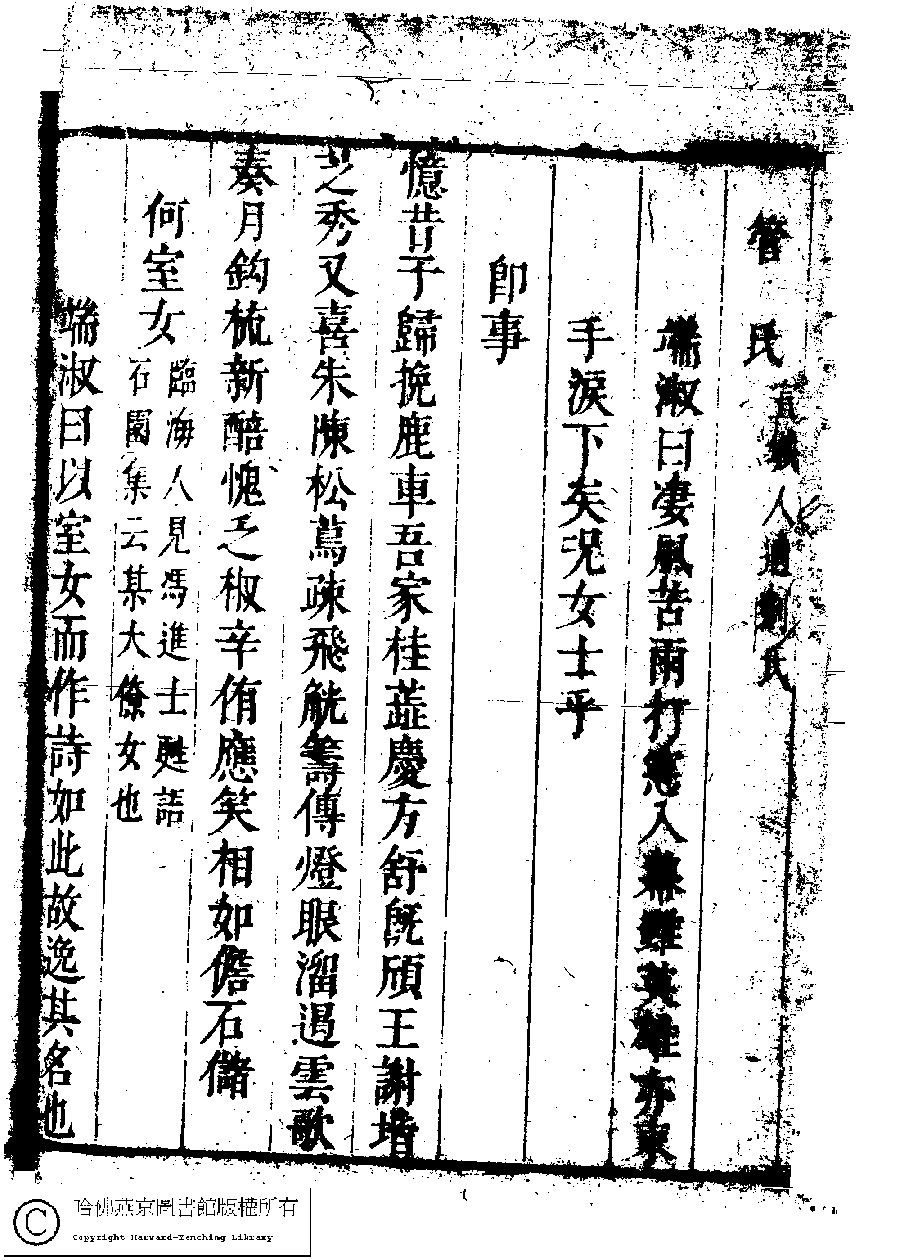 管 氏 宣城人適劉氏
端淑曰凄風苦雨行戀入幕雖英雄亦束
手淚下矣況女士乎
即事
憶昔于歸挽鹿車吾家桂蕋慶方舒既頎王謝堦
芝秀又喜朱陳松蔦疎飛觥籌傳燈眼溜遏雲歌
奏月鈎梳新醅愧乏椒辛侑應笑相如儋石儲
何室女 臨海人見馮進士甦詰
石園集云某大僚女也
端淑曰以室女而作詩如此故逸其名也
哈佛燕京圖書館版權所有
Copyright Harvard-Yenching Library